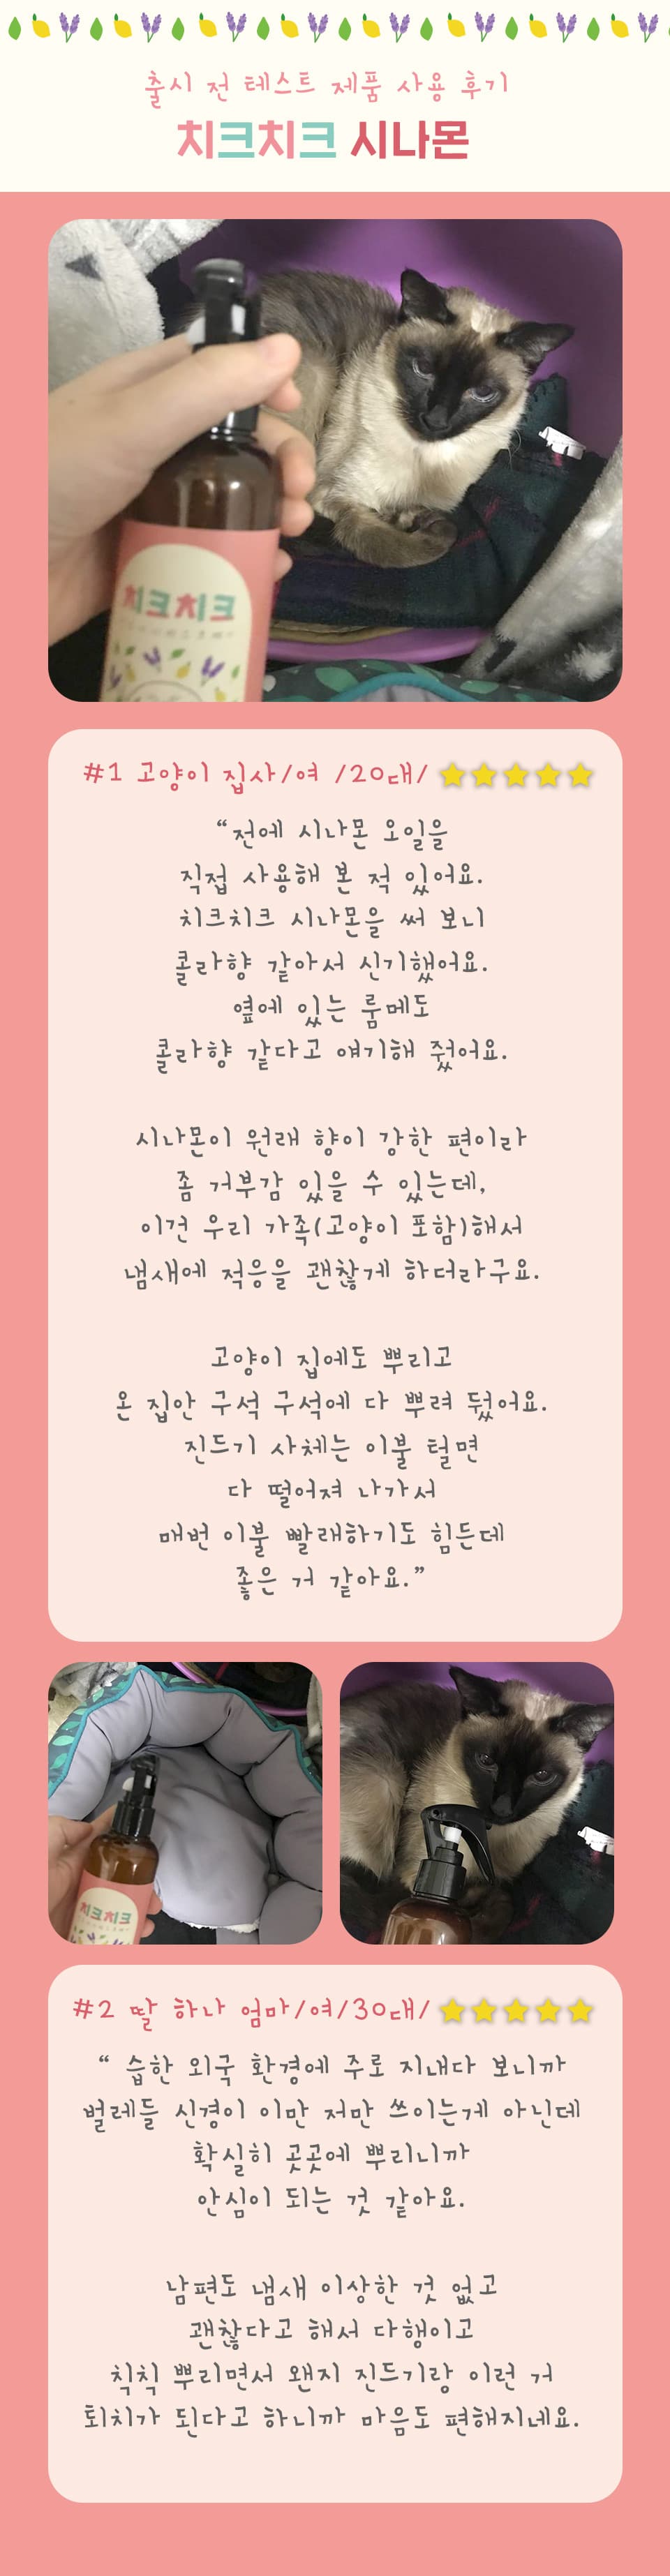 출시 전 테스트 제품 사용 후기
치크치크 시나몬
치크치크
#1 고양이 집사/여 /20대/
“전에 시나몬 오일을
직접 사용해 본 적 있어요.
치크치크 시나몬을 써 보니
콜라향 같아서 신기했어요.
옆에 있는 룸메도
콜라향 같다고 얘기해 줬어요.
시나몬이 원래 향이 강한 편이라
좀 거부감 있을 수 있는데,
이건 우리 가족(고양이 포함)해서
냄새에 적응을 괜찮게 하더라구요.
고양이 집에도 뿌리고
온 집안 구석 구석에 다 뿌려 뒀어요.
진드기 사체는 이불 털면
다 떨어져 나가서
매번 이불 빨래하기도 힘든데
좋은 거 같아요.”
치크치크
#2 딸 하나 엄마/여/30대/
“ 습한 외국 환경에 주로 지내다 보니까
벌레들 신경이 이만 저만 쓰이는게 아닌데
확실히 곳곳에 뿌리니까
안심이 되는 것 같아요.
남편도 냄새 이상한 것 없고
괜찮다고 해서 다행이고
칙칙 뿌리면서 왠지 진드기랑 이런 거
퇴치가 된다고 하니까 마음도 편해지네요.